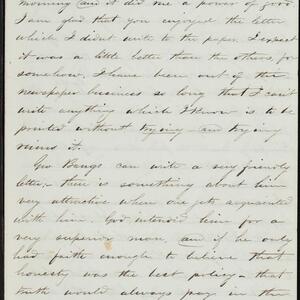 morning and it did me a power of good
I am glad that you enjoyed the letter
which I didnt write to the paper. I expect
it was a little better than the others for
somehow, I have been out of the
newspaper business so long that I can't
write anything which I know is to be
printed without trying and trying
ruins it.
Geo Bangs can write a very friendly
letter, there is something about him
very attractive when one gets acquainted
with him. God intended him for a
very superior man, and if he only
had faith enough to believe that
honesty was the best policy - that
truth would always pay in the